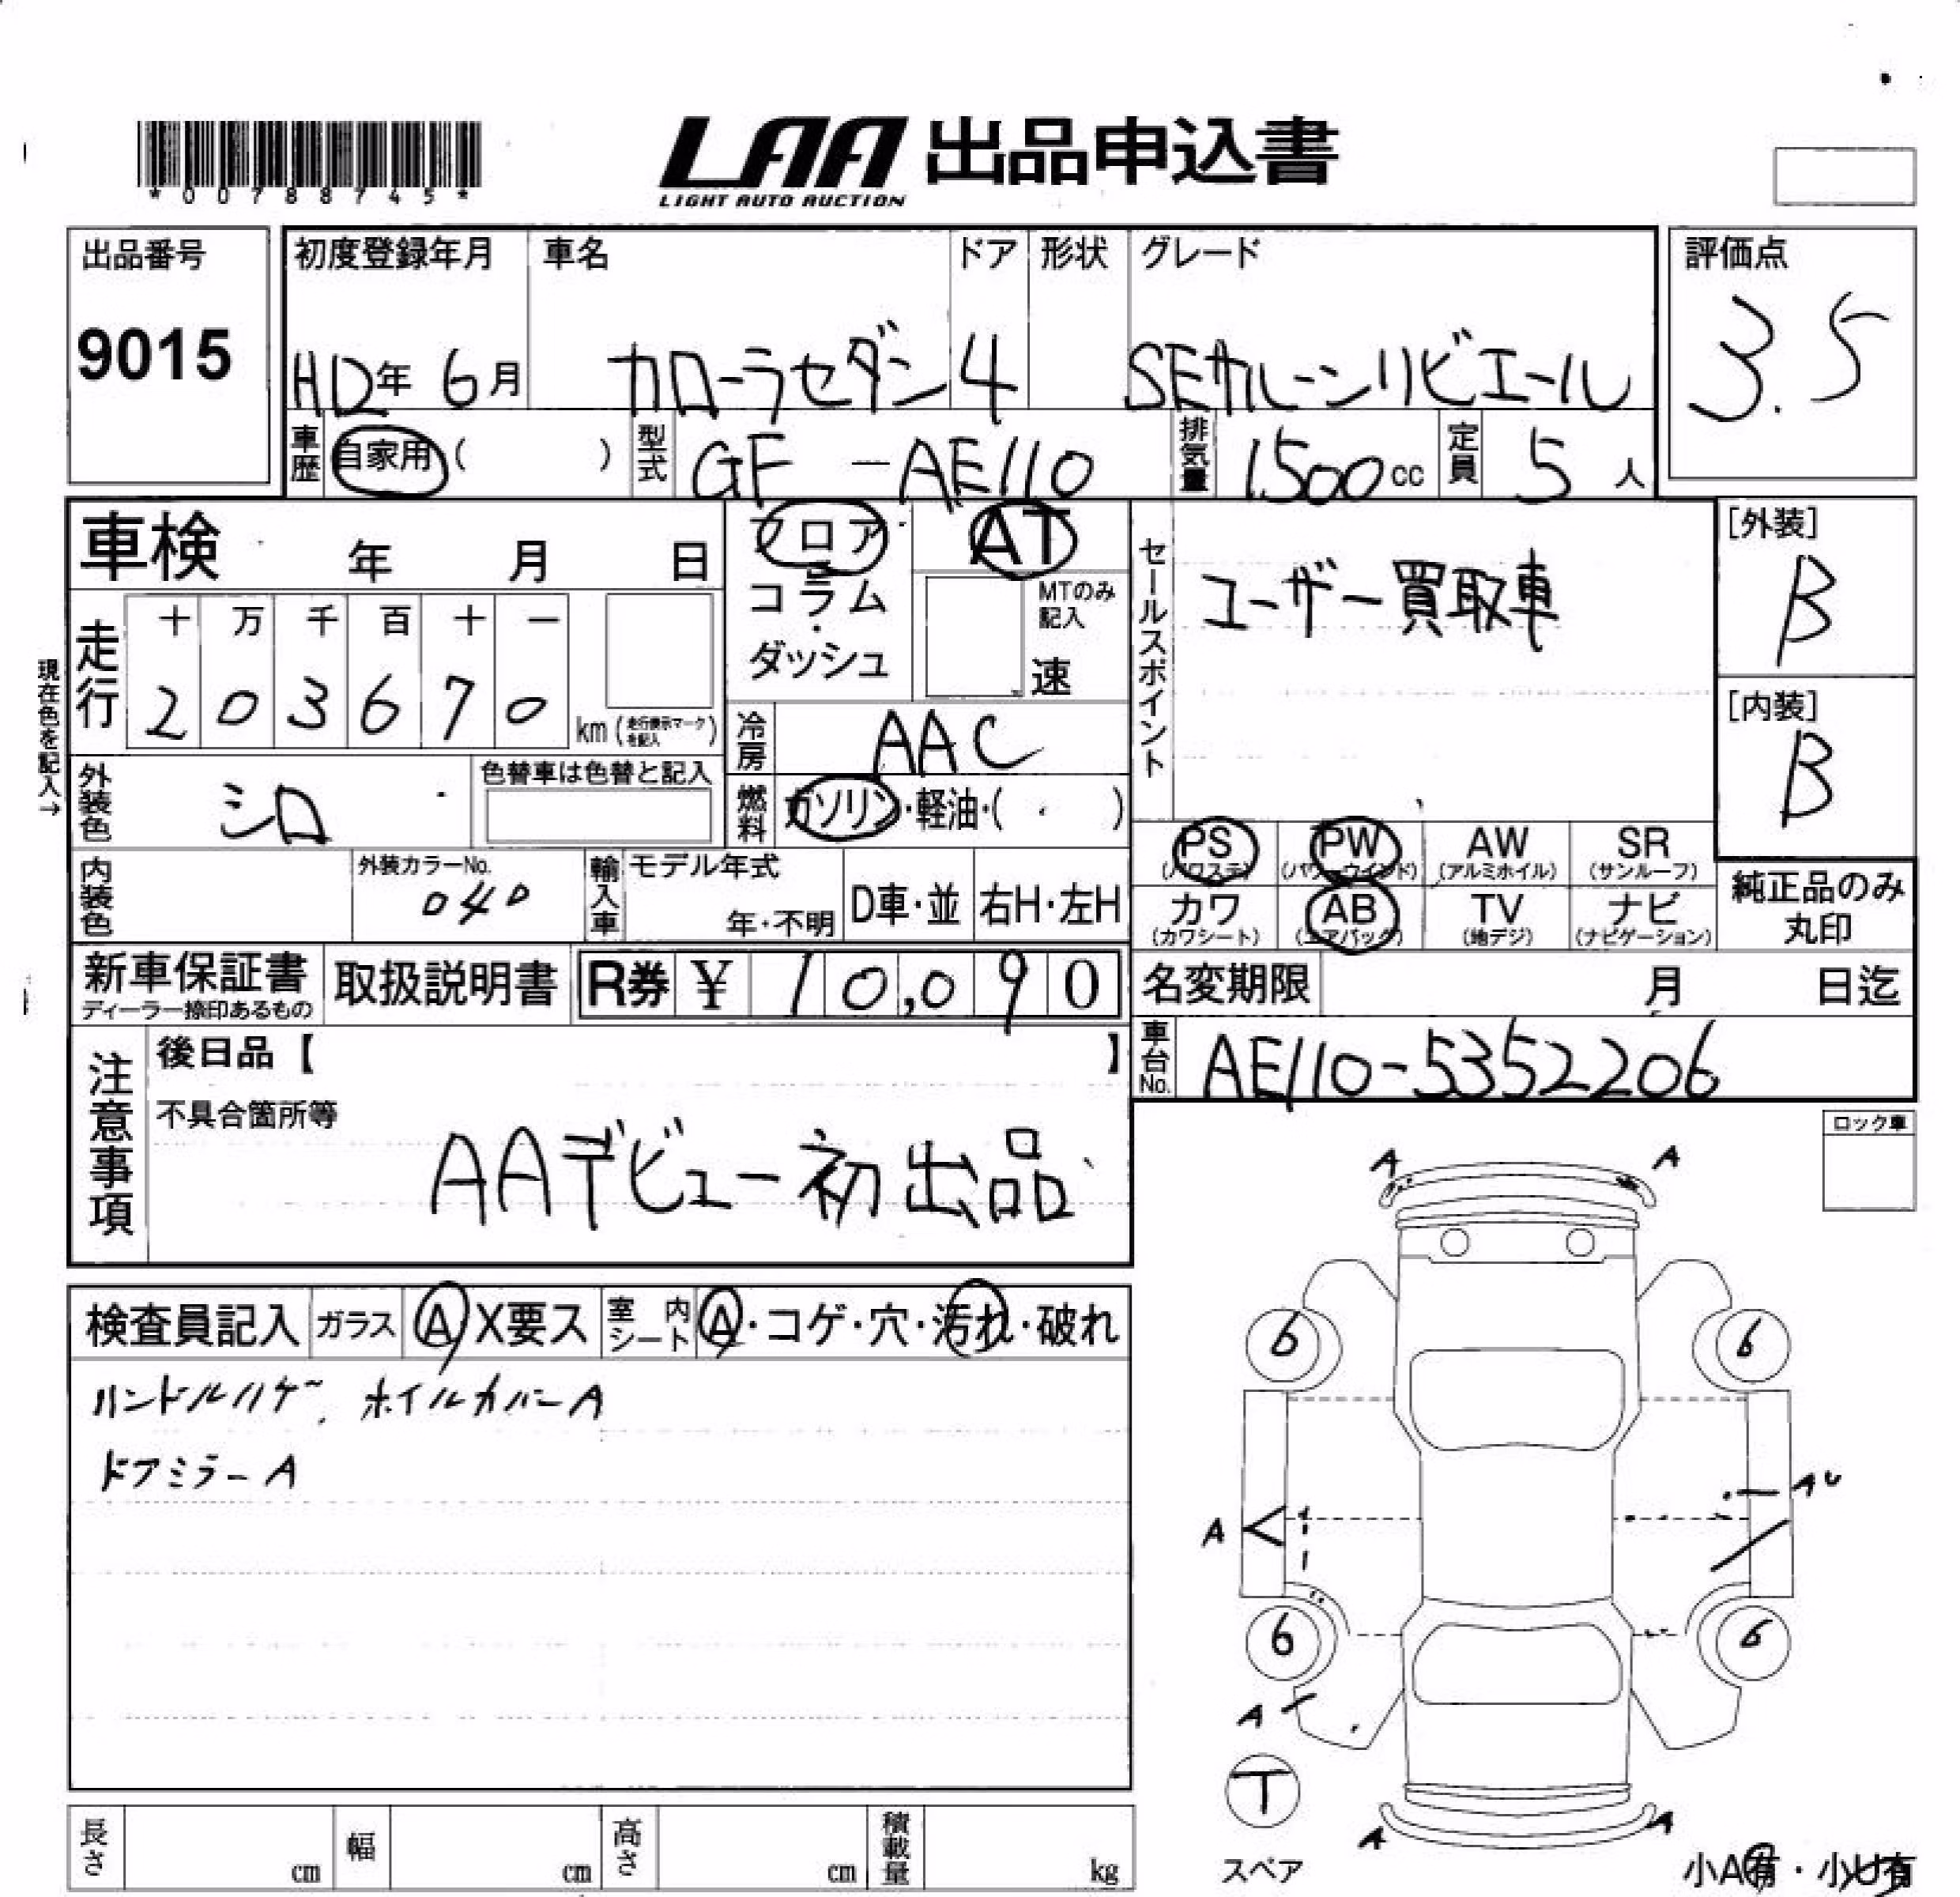 *00788745*
LAA 出品申込書
LIGHT AUTO AUCTION
出品番号 初度登録年月 車名 ドア 形状 グレード 評価点
9015 年 6月 カローラセダン 4 SEサルーンリビエール 3.5
車歴 自家用 ( ) 型式 GF - AE110 排気量 1500cc 定員 5人
車検 年 月 日 フロア AT セールスポイント ユーザー買取車 [外装]
コラム MTのみ記入 B
ダッシュ 速
走行 十 万 千 百 十 一
現在色を記入→
2 0 3 6 7 0 km (走行表示マークを記入) 冷房 AAC [内装]
外装色 シロ 色替車は色替と記入 燃料 ガソリン・軽油・( ) B
PS (パワステ) PW (パワーウインド) AW (アルミホイル) SR (サンルーフ)
内装色 外装カラーNo. 040 輸入車 モデル年式 年・不明 D車・並 右H・左H
カワ (カワシート) AB (エアバック) TV (地デジ) ナビ (ナビゲーション) 純正品のみ丸印
新車保証書 取扱説明書 R券 ¥ 10,090 名変期限 月 日迄
ディーラー捺印あるもの
車台No. AE110-5352206
注意事項 後日品【 】
不具合箇所等
AAデビュー初出品
ロック車
検査員記入 ガラス A X要ス 室内シート A・コゲ・穴・汚れ・破れ
ハンドルハゲ、ホイルカバーA
ドアミラーA
A A
6 6
AU
A
6 6
A
T
A A
スペア
小A有・小U有
長さ cm 幅 cm 高さ cm 積載量 kg